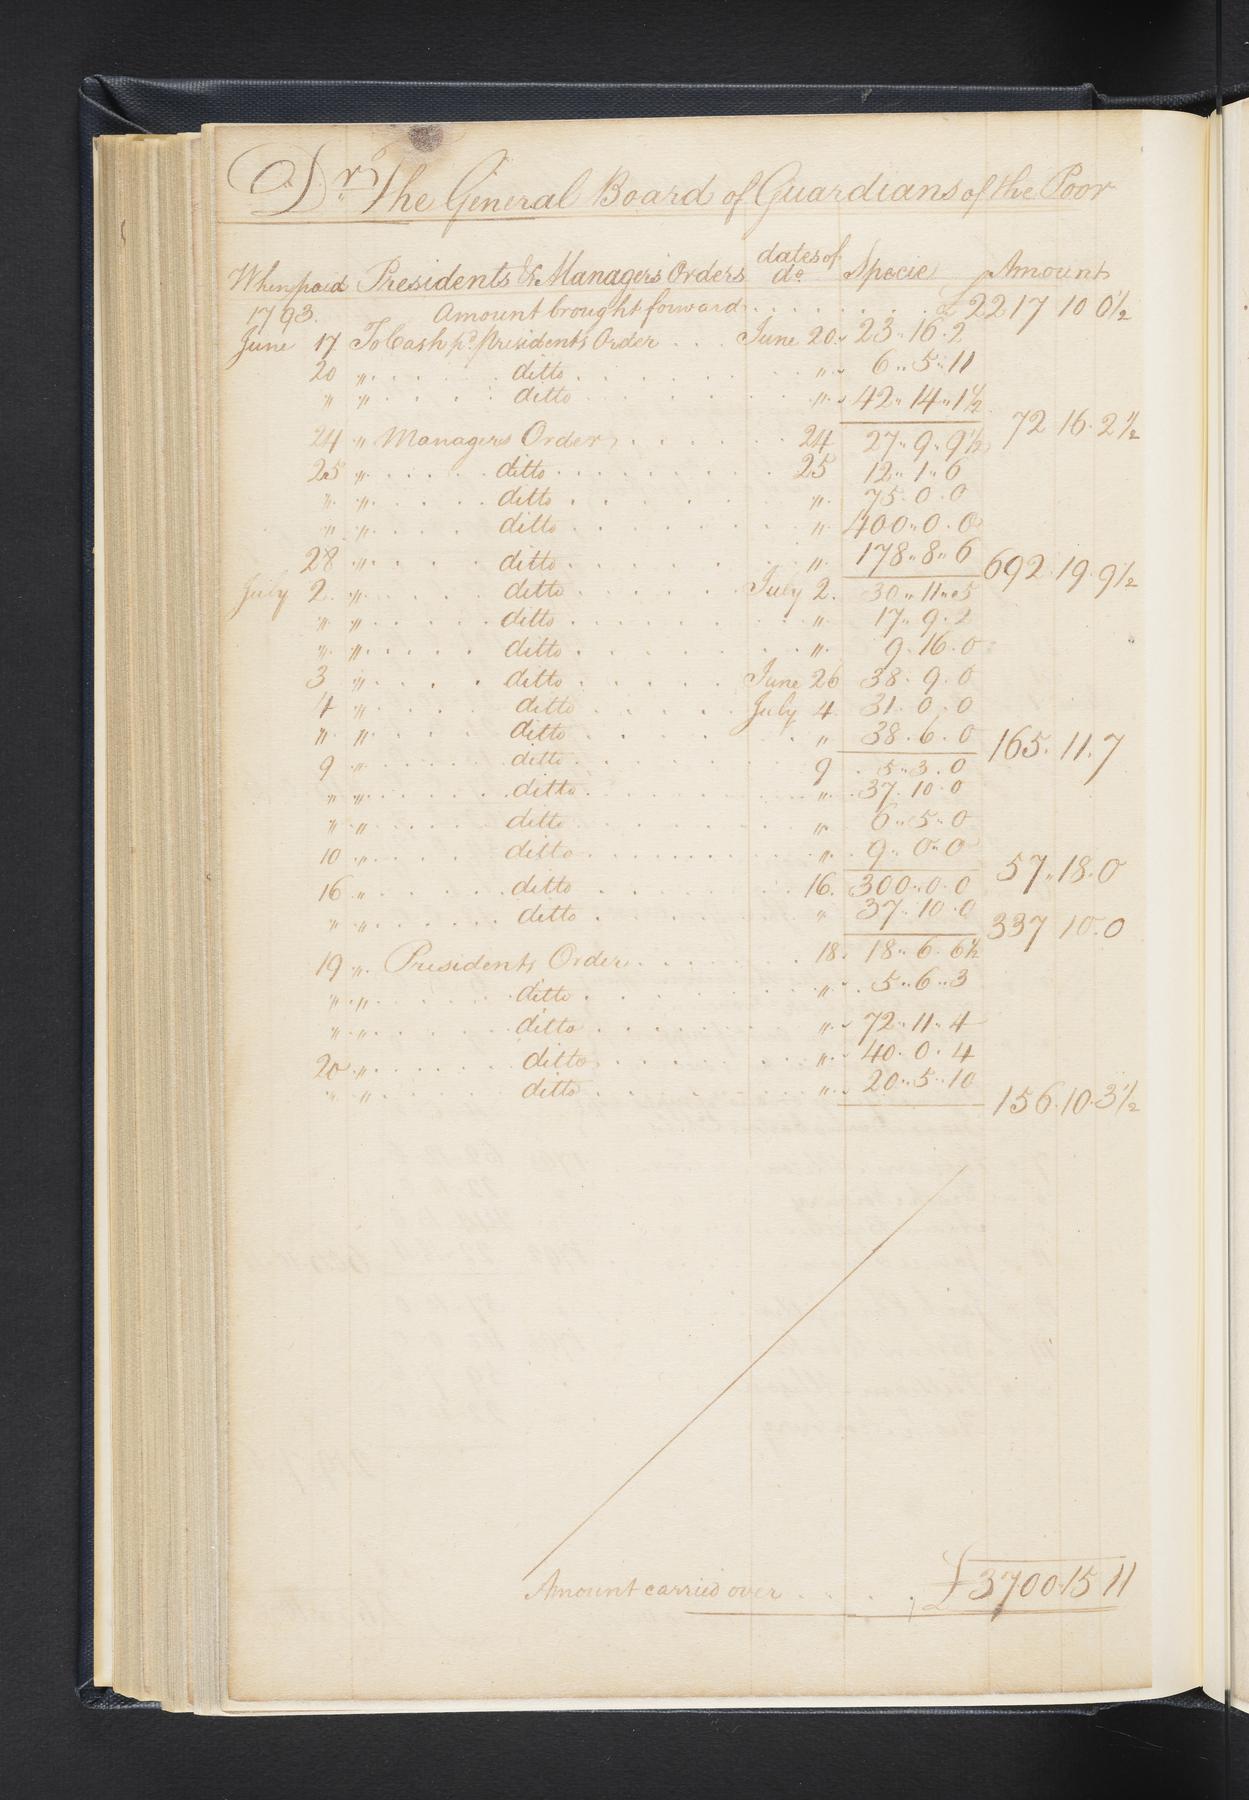 Dr. The General Board of Guardians of the Poor
When paid Presidents & Managers Orders dates of do. Specie Amount
1793. Amount brought forward . . . . . . £2217 10 0½
June 17 To Cash pr. Presidents Order . . . June 20 23 16 2
20 " ditto " 6 5 11
" " ditto " 42 14 1½ 72 16 2½
24 " Managers Order 24 27 9 9½
25 " ditto 25 12 1 6
" " ditto " 75 0 0
" " ditto " 400 0 0
28 " ditto " 178 8 6 692 19 9½
July 2 " ditto July 2. 30 11 5
" " ditto " 17 9 2
" " ditto " 9 16 0
3 " ditto June 26 38 9 0
4 " ditto July 4 31 0 0
" " ditto " 38 6 0 165 11 7
9 " ditto 9 5 3 0
" " ditto " 37 10 0
" " ditto " 6 5 0
10 " ditto " 9 0 0 57 18 0
16 " ditto 16. 300 0 0
" " ditto " 37 10 0 337 10 0
19 " Presidents Order 18. 18 6 6½
" " ditto " 5 6 3
" " ditto " 72 11 4
20 " ditto " 40 0 4
" " ditto " 20 5 10 156 10 3½
Amount carried over . . . . £3700 15 11